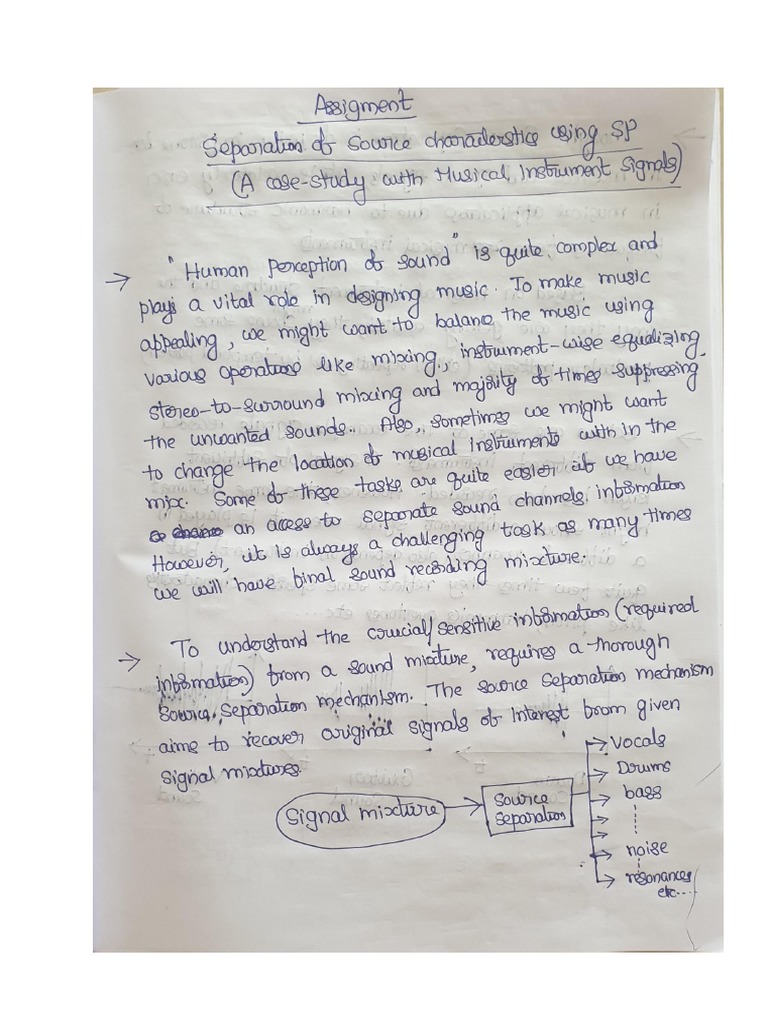 Assigment
Separation of Source characterstics using SP
(A case-study with Musical Instrument Signals)
→ "Human Perception of Sound" is quite complex and
plays a vital role in designing music. To make music
appealing, we might want to balance the music using
various operations like mixing, instrument-wise equalizing,
stereo-to-surround mixing and majority of times suppressing
the unwanted sounds. Also, sometimes we might want
to change the location of musical instruments with in the
mix. Some of these tasks are quite easier if we have
an access to separate sound channels information
However, it is always a challenging task as many times
we will have final sound recording mixture.
→ To understand the crucial/sensitive information (required
information) from a sound mixture, requires a thorough
source separation mechanism. The source separation mechanism
aims to recover original signals of interest from given
signal mixtures.
Signal mixture → Source Separation
→ Vocals
→ Drums
→ bass
→ noise
→ resonances
etc...